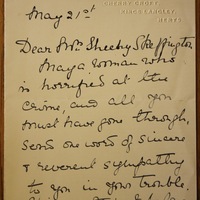 CHERRY CROFT,
KING'S LANGLEY,
HERTS.
May 21st
Dear Mrs Sheehy Skeffington
May a woman who
is horrified at the
crime, and all you
must have gone through,
send one word of sincere
& reverent sympathy
to you in your trouble.